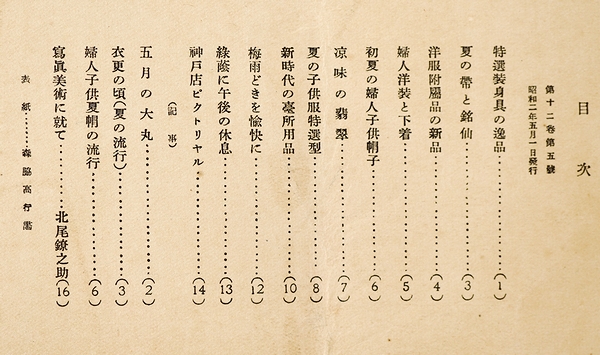 目次
第十二巻第五號
昭和二年五月一日發行
特選裝身具の逸品……………(1)
夏の帶と銘仙……………(3)
洋服附屬品の新品……………(4)
婦人洋裝と下着……………(5)
初夏の婦人子供帽子……………(6)
凉味の翡翠……………(7)
夏の子供服特選型……………(8)
新時代の臺所用品……………(10)
梅雨どきを愉快に……………(12)
綠蔭に午後の休息……………(13)
神戸店ピクトリヤル……………(14)
(記事)
五月の大丸……………(2)
衣更の頃(夏の流行)……………(3)
婦人子供夏帽の流行……………(6)
寫眞美術に就て……………北尾鐐之助(16)
表紙……森脇高行